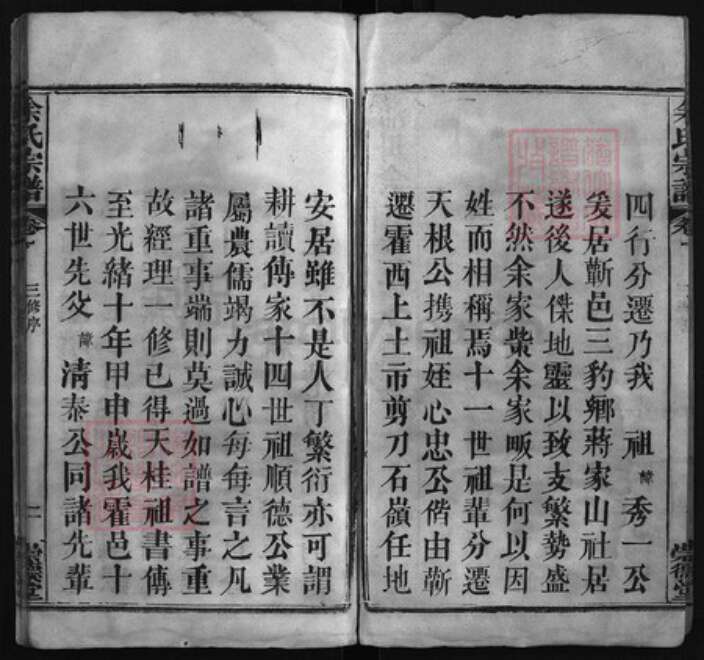 四行分遷乃我　祖諱秀一公
爰居蘄邑三豹鄉蔣家山社居
遂後人傑地靈以致支繁勢盛
不然余家柴余家畈是何以因
姓而相稱焉十一世祖輩分遷
天根公携祖姪心忠公偕由蘄
遷霍西上土市剪刀石嶺任地
安居雖不是人丁繁衍亦可謂
耕讀傳家十四世祖順德公業
屬農儒竭力誠心每每言之凡
諸重事端則莫過如譜之事重
故經理一修已得天桂祖書傳
至光緒十年甲申歲我霍邑十
六世先父諱清泰公同諸先輩
余氏宗譜
卷
三修序
二